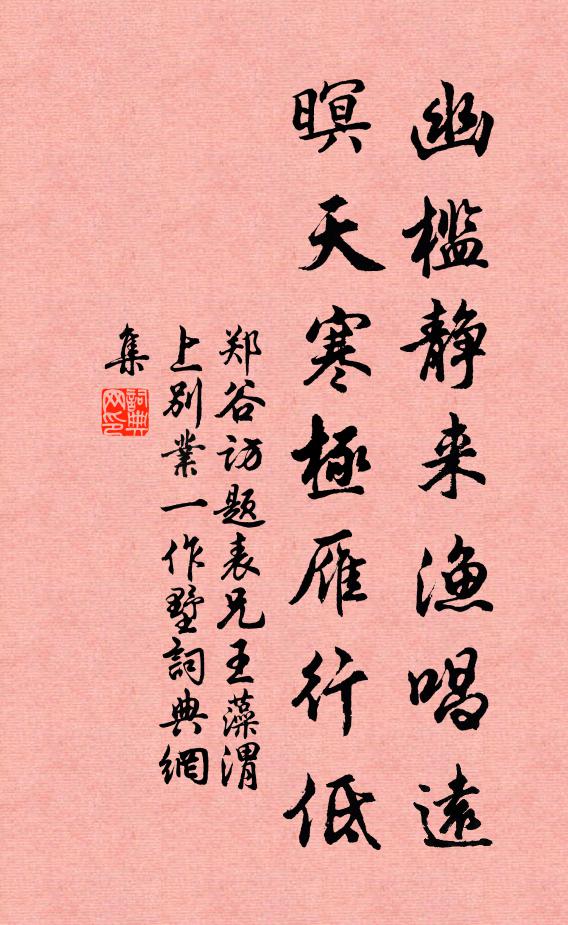 幽槛静来渔唱遠
暝天寒極雁行低
郑谷访题表兄王藻渭
上别業一作墅詞典網
集
詞典
网印